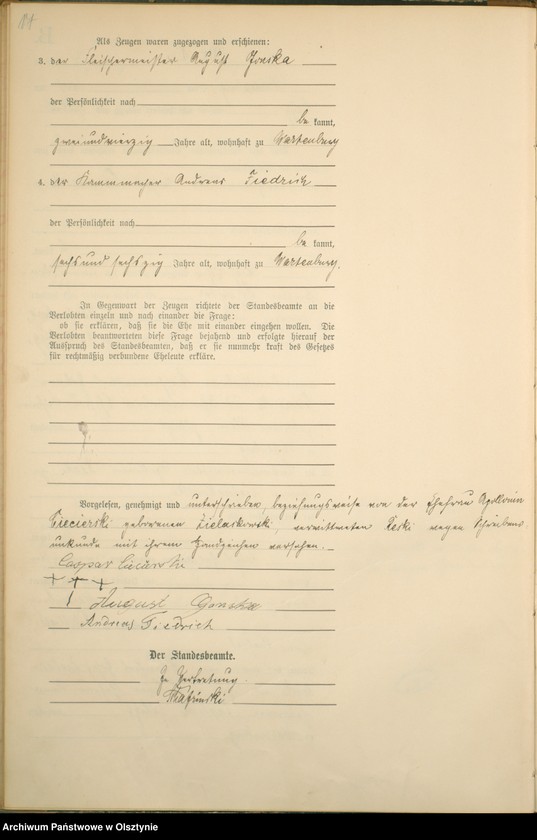 Als Zeugen waren zugezogen und erschienen:
3. der Fleischermeister August Gonska
der Persönlichkeit nach
be kannt,
zweiundvierzig Jahre alt, wohnhaft zu Wartenburg
4. der Kammmacher Andreas Fiedrich
der Persönlichkeit nach
be kannt,
sechsundsechszig Jahre alt, wohnhaft zu Wartenburg.
In Gegenwart der Zeugen richtete der Standesbeamte an die
Verlobten einzeln und nach einander die Frage:
ob sie erklären, daß sie die Ehe mit einander eingehen wollen. Die
Verlobten beantworteten diese Frage bejahend und erfolgte hierauf der
Ausspruch des Standesbeamten, daß er sie nunmehr kraft des Gesetzes
für rechtmäßig verbundene Eheleute erkläre.
Vorgelesen, genehmigt und unterschrieben, beziehungsweise von der Ehefrau Apollonia
geborenen verwittweten wegen Schreibens
unkunde mit ihrem Handzeichen versehen.
Caspar
+ + +
August Gonska
Andreas Fiedrich
Der Standesbeamte.
In Vertretung
Archiwum Państwowe w Olsztynie